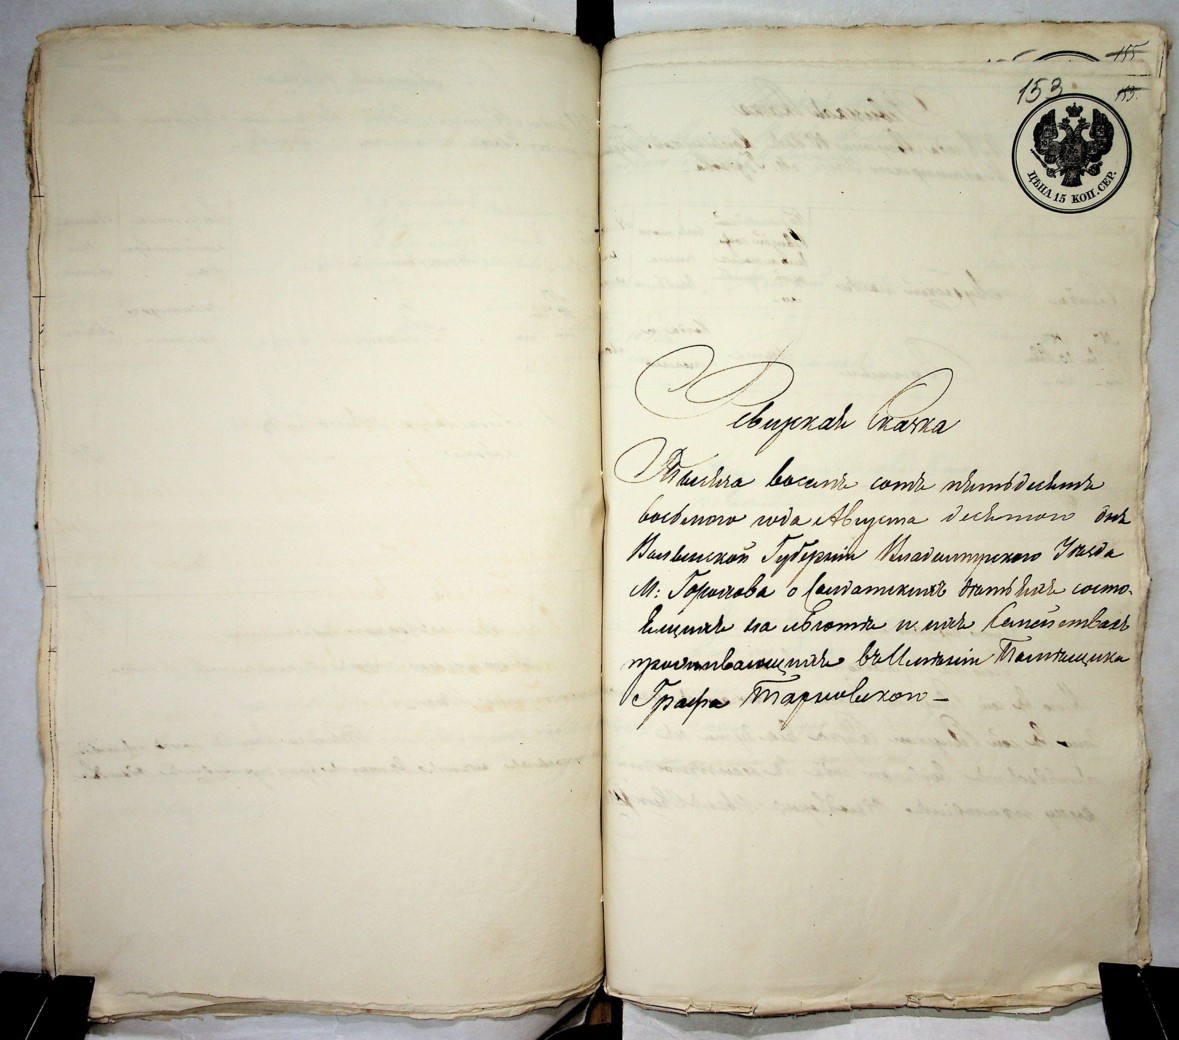 155
153
153.
ЦѢНА 15 КОП. СЕР.
Ревизкая Сказка
Тысяча восемь сотъ пятьдесятъ
восьмого года Августа десятого дня
Волынской Губерніи Владимірского Уезда
М: Горохова о Солдатскихъ дѣтяхъ состо-
ящихъ на льготѣ и ихъ Семействахъ
проживающихъ въ Имѣніи Помѣщика
Графа Тарновского —